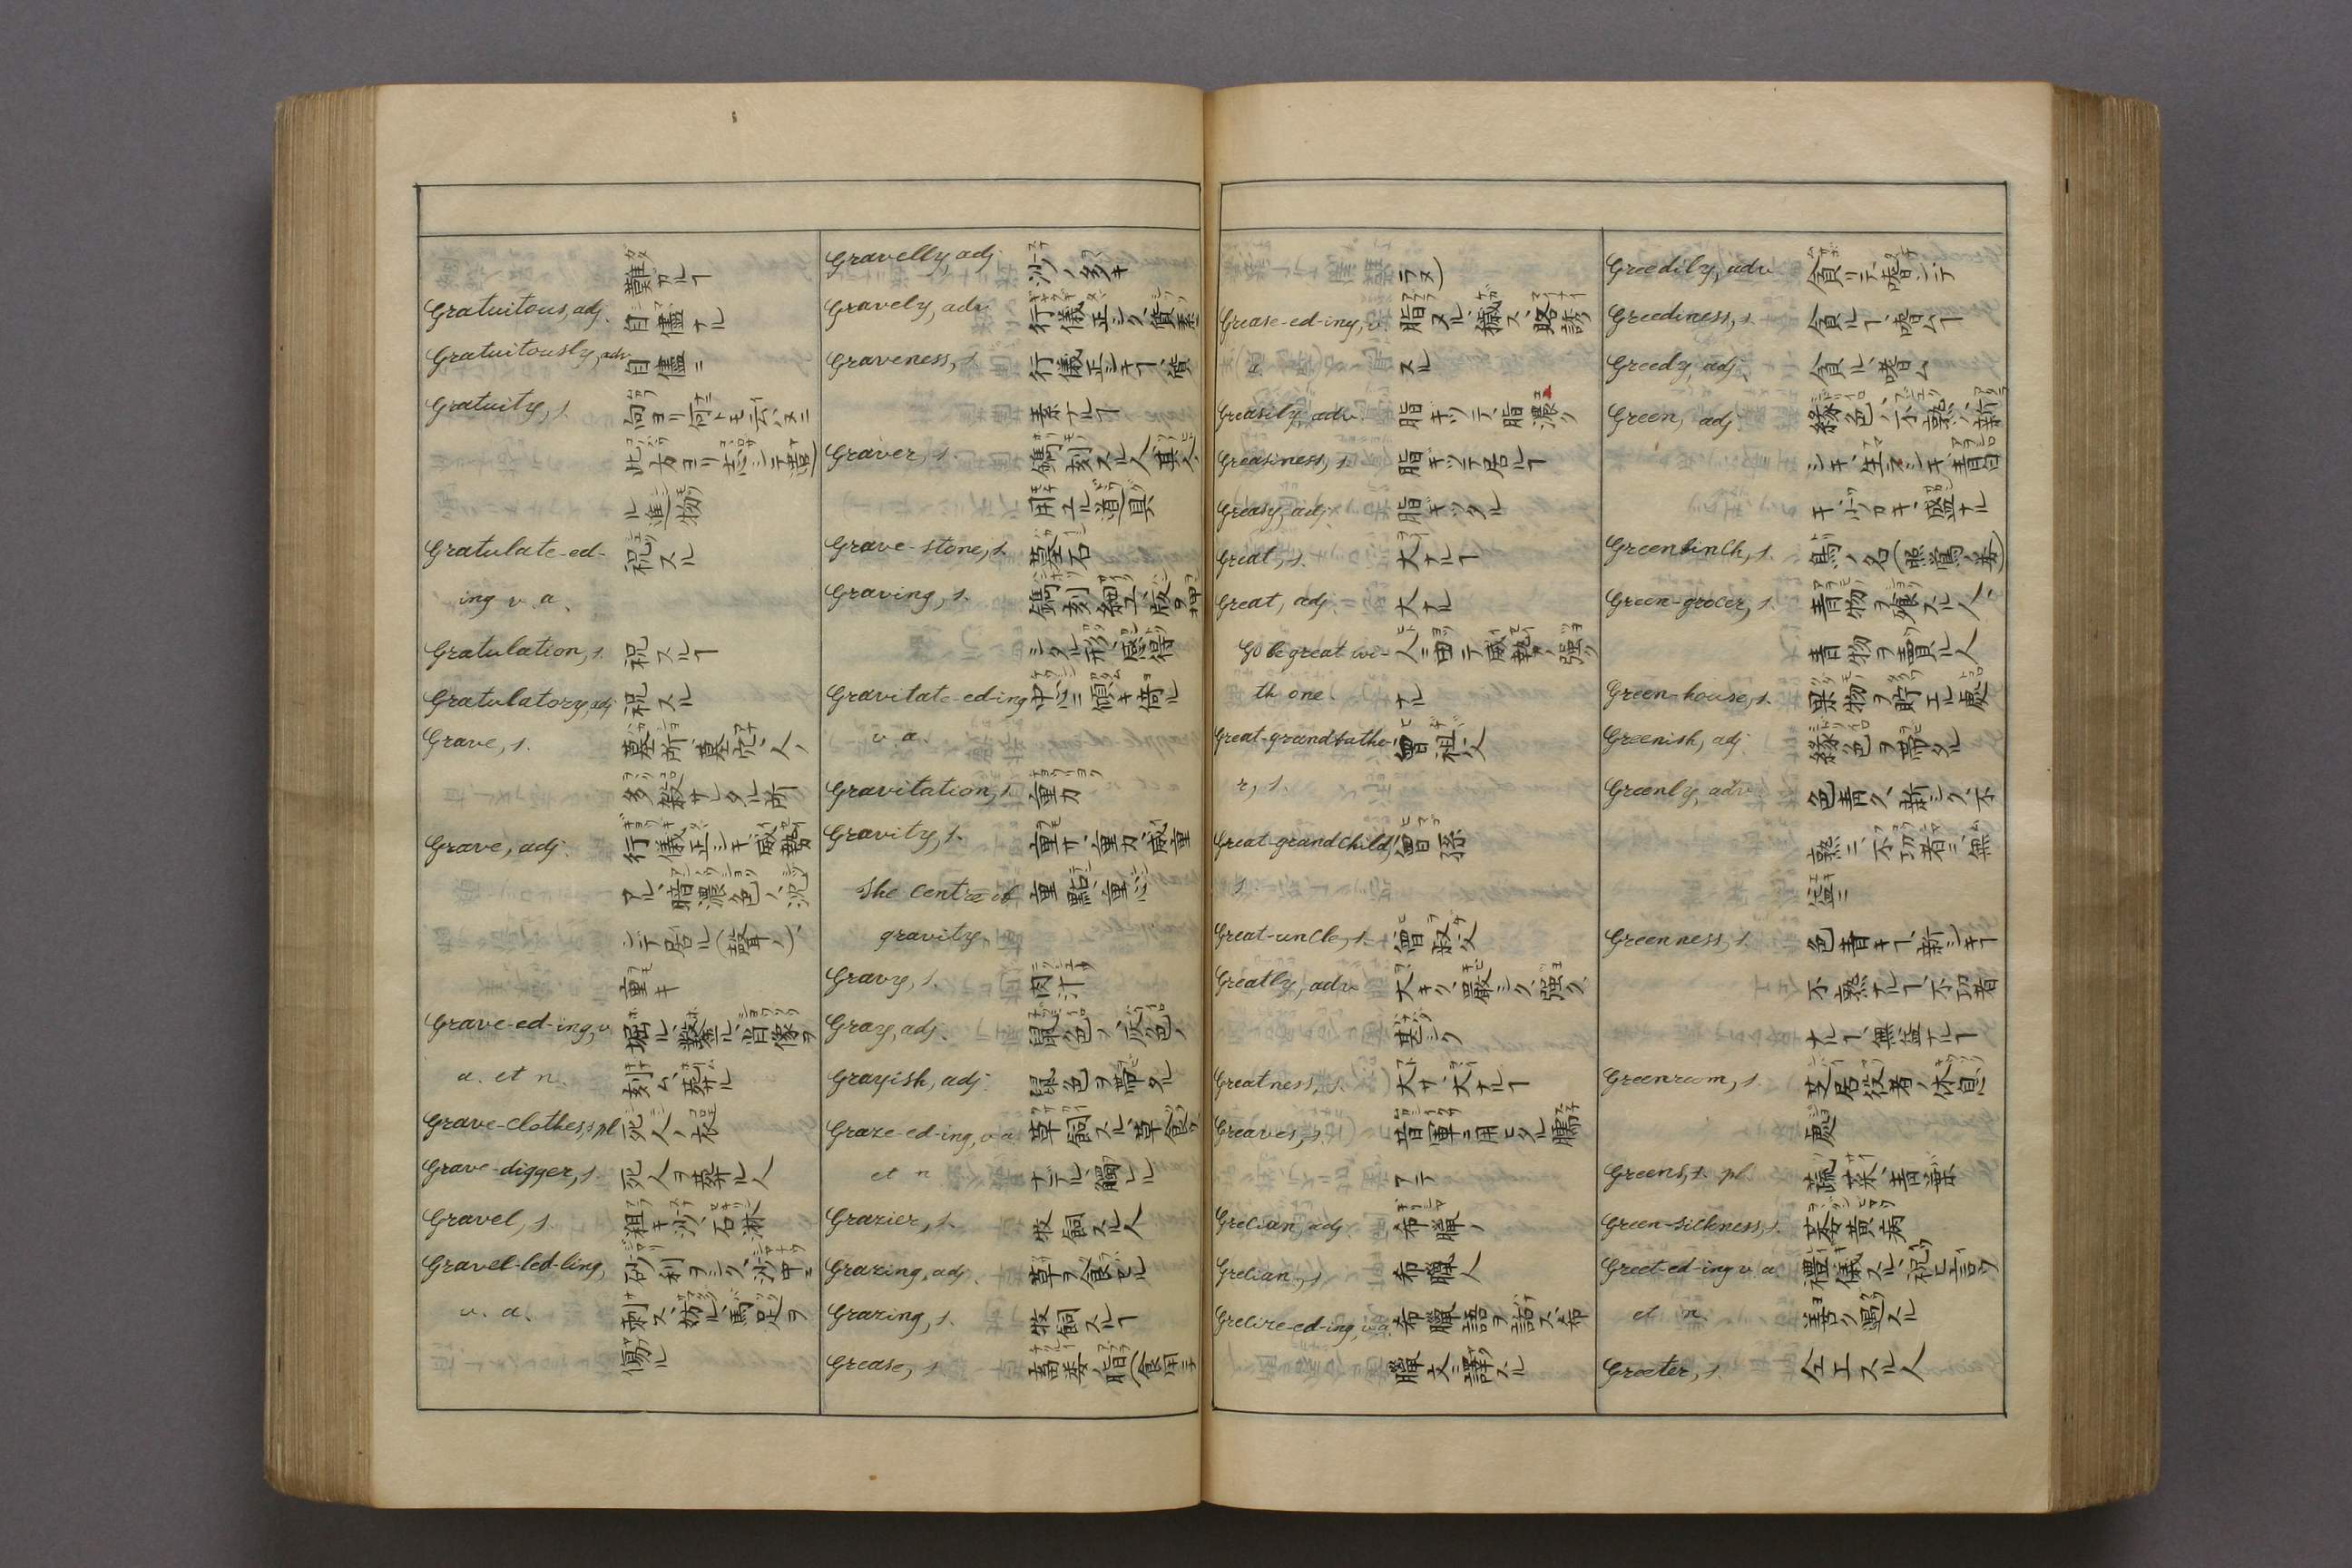 難アルヿ
Gratuitous, adj. 自儘ナル
Gratuitously, adv. 自儘ニ
Gratuity, s.
ル進物
Gratulate-ed- 祝スル
ing v. a.
Gratulation, s. 祝スルヿ
Gratulatory, adj 祝スル
Grave, s. 墓所、墓穴、人ノ
多ク殺サレタル所
Grave, adj. 行儀正シキ、威勢
アル、暗濃色ノ、沈
シテ居ル(聲ノ)、
重キ
Grave-ed-ing, v. 堀ル、鑿ル、肖像ヲ
a. et n. 刻ム、葬ル
Grave-clothes, s. pl 死人ノ衣
Grave-digger, s. 死人ヲ葬ル人
Gravel, s. 粗キ沙、石淋
Gravel-led-ling, 砂利ヲシク、沙中ニ
v. a. 刺ス、妨ル、馬足ヲ
傷ル
Gravelly, adj. 沙ノ多キ
Gravely, adv. 行儀正シク、質素
Graveness, s. 行儀正シキヿ、質
素ナルヿ
Graver, s. 鐫刻スル人、其人
用ユル道具
Grave-stone, s. 墓石
Graving, s. 鐫刻細工、版ヲ押
シタル形、感得
Gravitate-ed-ing 中心ニ傾キ倚ル
v. a.
Gravitation, s. 重力
Gravity, s. 重サ、重力、威重
The centre of 重點、重心
gravity.
Gravy, s. 肉汁
Gray, adj. 鼠色ノ、灰色ノ
Grayish, adj. 鼠色ヲ帶タル
Graze-ed-ing, v. a. 草飼スル、草食フ
et n ナデル、觸レル
Grazier, s. 牧飼スル人
Grazing, adj. 草ヲ食セル
Grazing, s. 牧飼スルヿ
Grease, s. 畜類ノ脂(食用ニ
ラヌ)
Grease-ed-ing, v. 脂ヌル、穢ス、賂誘
a. スル
Greasily, adv. 脂ギッテ、脂濃ク
Greasiness, s. 脂ギッテ居ルヿ
Greasy, adj. 脂ギッタル
Great, s. 大ナルヿ
Great, adj. 大ナル
Go be great wi- 人ニ由テ威勢ノ強ク
th one. ナル
Great-grandfathe- 曾祖父
r, s.
Great-grandchild, 曾孫
s.
Great-uncle, s. 曾叔父
Greatly, adv. 大キク、嚴シク、強ク、
甚シク
Greatness, s. 大サ、大ナルヿ
Greaves, s. 昔軍ニ用ヒタル臑
アテ
Grecian, adj. 希臘ノ
Grecian, s. 希臘人
Grecize-ed-ing, v. a. 希臘語ヲ話ス、希
臘文ニ譯スル
Greedily, adv. 貪リテ、嗜ンデ
Greediness, s. 貪ルヿ、嗜ムヿ
Greedy, adj. 貪ル、嗜ム
Green, adj. 綠色ノ、不熟ノ、新
Greenfinch, s. 鳥ノ名
Green-grocer, s. 青物ヲ
青物ヲ賣ル人
Green-house, s. 果物ヲ貯エル處
Greenish, adj. 綠色ヲ帶タル
Greenly, adv. 色青ク、新シク、不
熟ニ、不功者ニ、無
益ニ
Greenness, s. 色青キヿ、新シキヿ
不熟ナルヿ、不功者
ナルヿ、無益ナルヿ
Greenroom, s. 芝居役者ノ休息
處
Greens, s. pl. 蔬菜、青葉
Green-sickness, s. 萎黃病
Greet-ed-ing v. a. 禮儀スル、祝ヒ言フ
et n.
Greeter, s. 仝上スル人